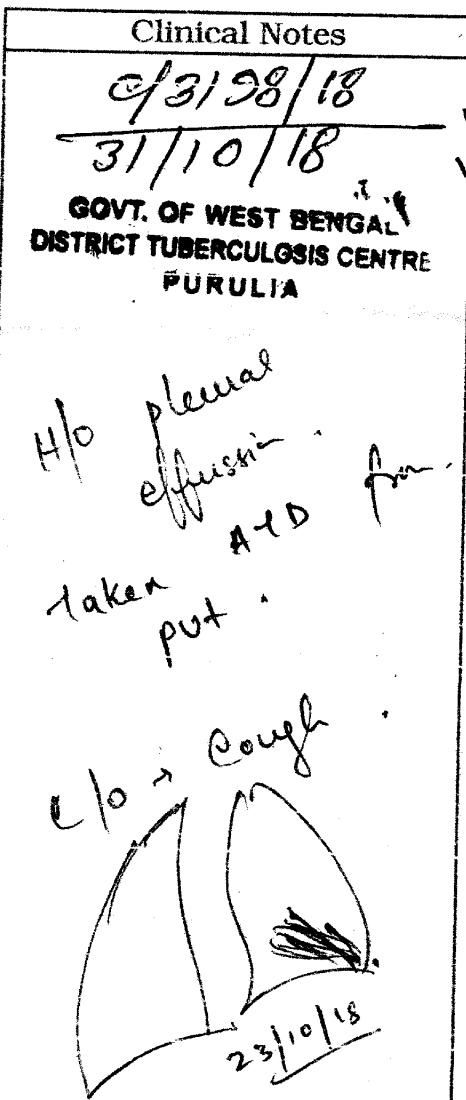 Clinical Notes
C/3198/18
31/10/18
GOVT. OF WEST BENGAL
DISTRICT TUBERCULOSIS CENTRE
PURULIA
H/o pleural
effussion.
Taken ATD from
put.
C/o → Cough
23/10/18